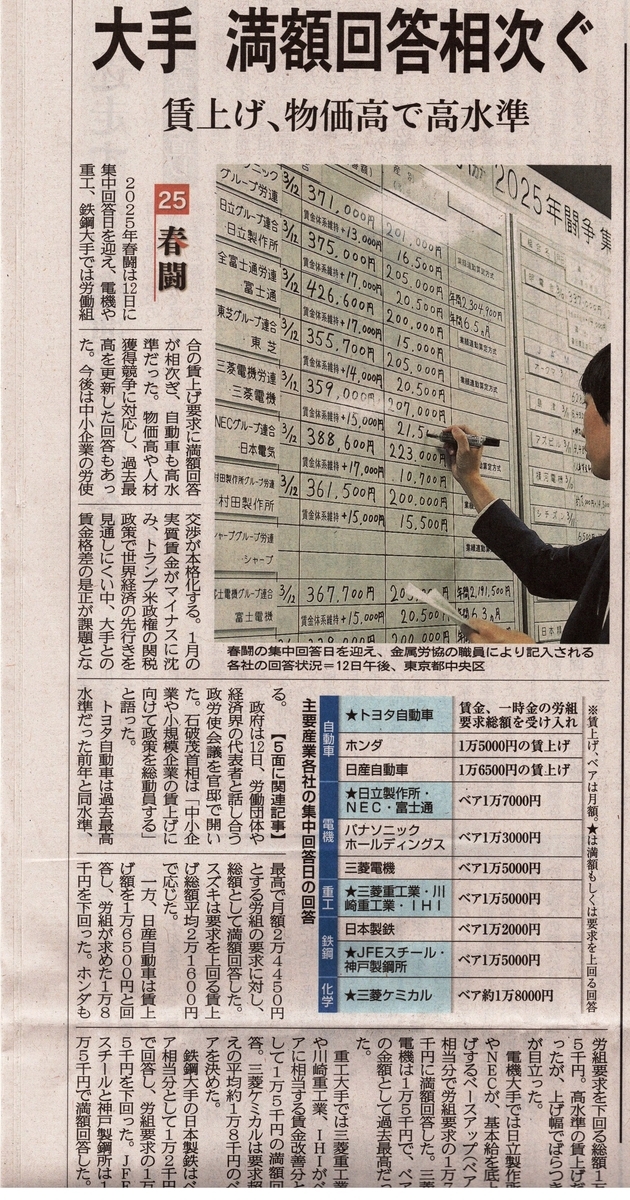 大手 満額回答相次ぐ
賃上げ、物価高で高水準
25
春闘
2025年春闘は12日に
集中回答日を迎え、電機や
重工、鉄鋼大手では労働組
合の賃上げ要求に満額回答
が相次ぎ、自動車も高水
準だった。物価高や人材
獲得競争に対応し、過去最
高を更新した回答もあっ
た。今後は中小企業の労使
交渉が本格化する。1月の
実質賃金がマイナスに沈
み、トランプ米政権の関税
政策で世界経済の先行きを
見通しにくい中、大手との
賃金格差の是正が課題とな
る。【5面に関連記事】
政府は12日、労働団体や
経済界の代表者と話し合う
政労使会議を官邸で開い
た。石破茂首相は「中小企
業や小規模企業の賃上げに
向けて政策を総動員する」
と語った。
トヨタ自動車は過去最高
水準だった前年と同水準、
最高で月額2万4450円
とする労組の要求に対し、
総額として満額回答した。
スズキは要求を上回る賃上
げ総額平均2万1600円
で応じた。
一方、日産自動車は賃上
げ額を1万6500円と回
答し、労組が求めた1万8
千円を下回った。ホンダも
労組要求を下回る総額1万
5千円。高水準の賃上げだ
ったが、上げ幅でばらつき
が目立った。
電機大手では日立製作所
やNECが、基本給を底上
げするベースアップ(ベア)
相当分で労組要求の1万7
千円に満額回答した。三菱
電機は1万5千円で、ベア
の金額として過去最高だっ
た。
重工大手では三菱重工業
や川崎重工業、IHIがベ
アに相当する賃金改善分と
して1万5千円の満額回
答。三菱ケミカルは要求超
えの平均約1万8千円のベ
アを決めた。
鉄鋼大手の日本製鉄はベ
ア相当分として1万2千円
で回答し、労組要求の1万
5千円を下回った。JFE
スチールと神戸製鋼所は1
万5千円で満額回答した。
2025年闘争 集
グループ労連 3/12 371,000円
賃金体系維持+13,000円
201,000円
日立グループ連合 3/12 375,000円 16,500円
日立製作所 賃金体系維持+17,000円 205,000円
年間2,304,900円
全富士通労連 3/12 426,600円 20,500円
年間6.5ヵ月
富士通 賃金体系維持+17,000円 200,000円
東芝グループ連合 3/12 355,700円 15,000円
東芝 賃金体系維持+14,000円 205,000円
三菱電機労連 3/12 359,000円 20,500円
三菱電機 賃金体系維持+15,000円 207,000円
NECグループ連合 3/12 388,600円 21,5
日本電気 賃金体系維持+17,000円 223,000円
村田製作所グループ労連 3/12 361,500円 10,700円
村田製作所 賃金体系維持+15,000円 200,000円
15,500円
シャープグループ労連
シャープ
富士電機グループ連合 3/12 367,700円
年間2,191,500円
富士電機 賃金体系維持+15,000円 20,500円
年間6.3ヵ月
春闘の集中回答日を迎え、金属労協の職員により記入される
各社の回答状況=12日午後、東京都中央区
主要産業各社の集中回答日の回答
自動車
★トヨタ自動車 賃金、一時金の労組要求総額を受け入れ
ホンダ 1万5000円の賃上げ
日産自動車 1万6500円の賃上げ
電機
★日立製作所・NEC・富士通 ベア1万7000円
パナソニックホールディングス ベア1万3000円
三菱電機 ベア1万5000円
重工
★三菱重工業・川崎重工業・IHI ベア1万5000円
鉄鋼
日本製鉄 ベア1万2000円
★JFEスチール・神戸製鋼所 ベア1万5000円
化学
★三菱ケミカル ベア約1万8000円
※賃上げ、ベアは月額。★は満額もしくは要求を上回る回答